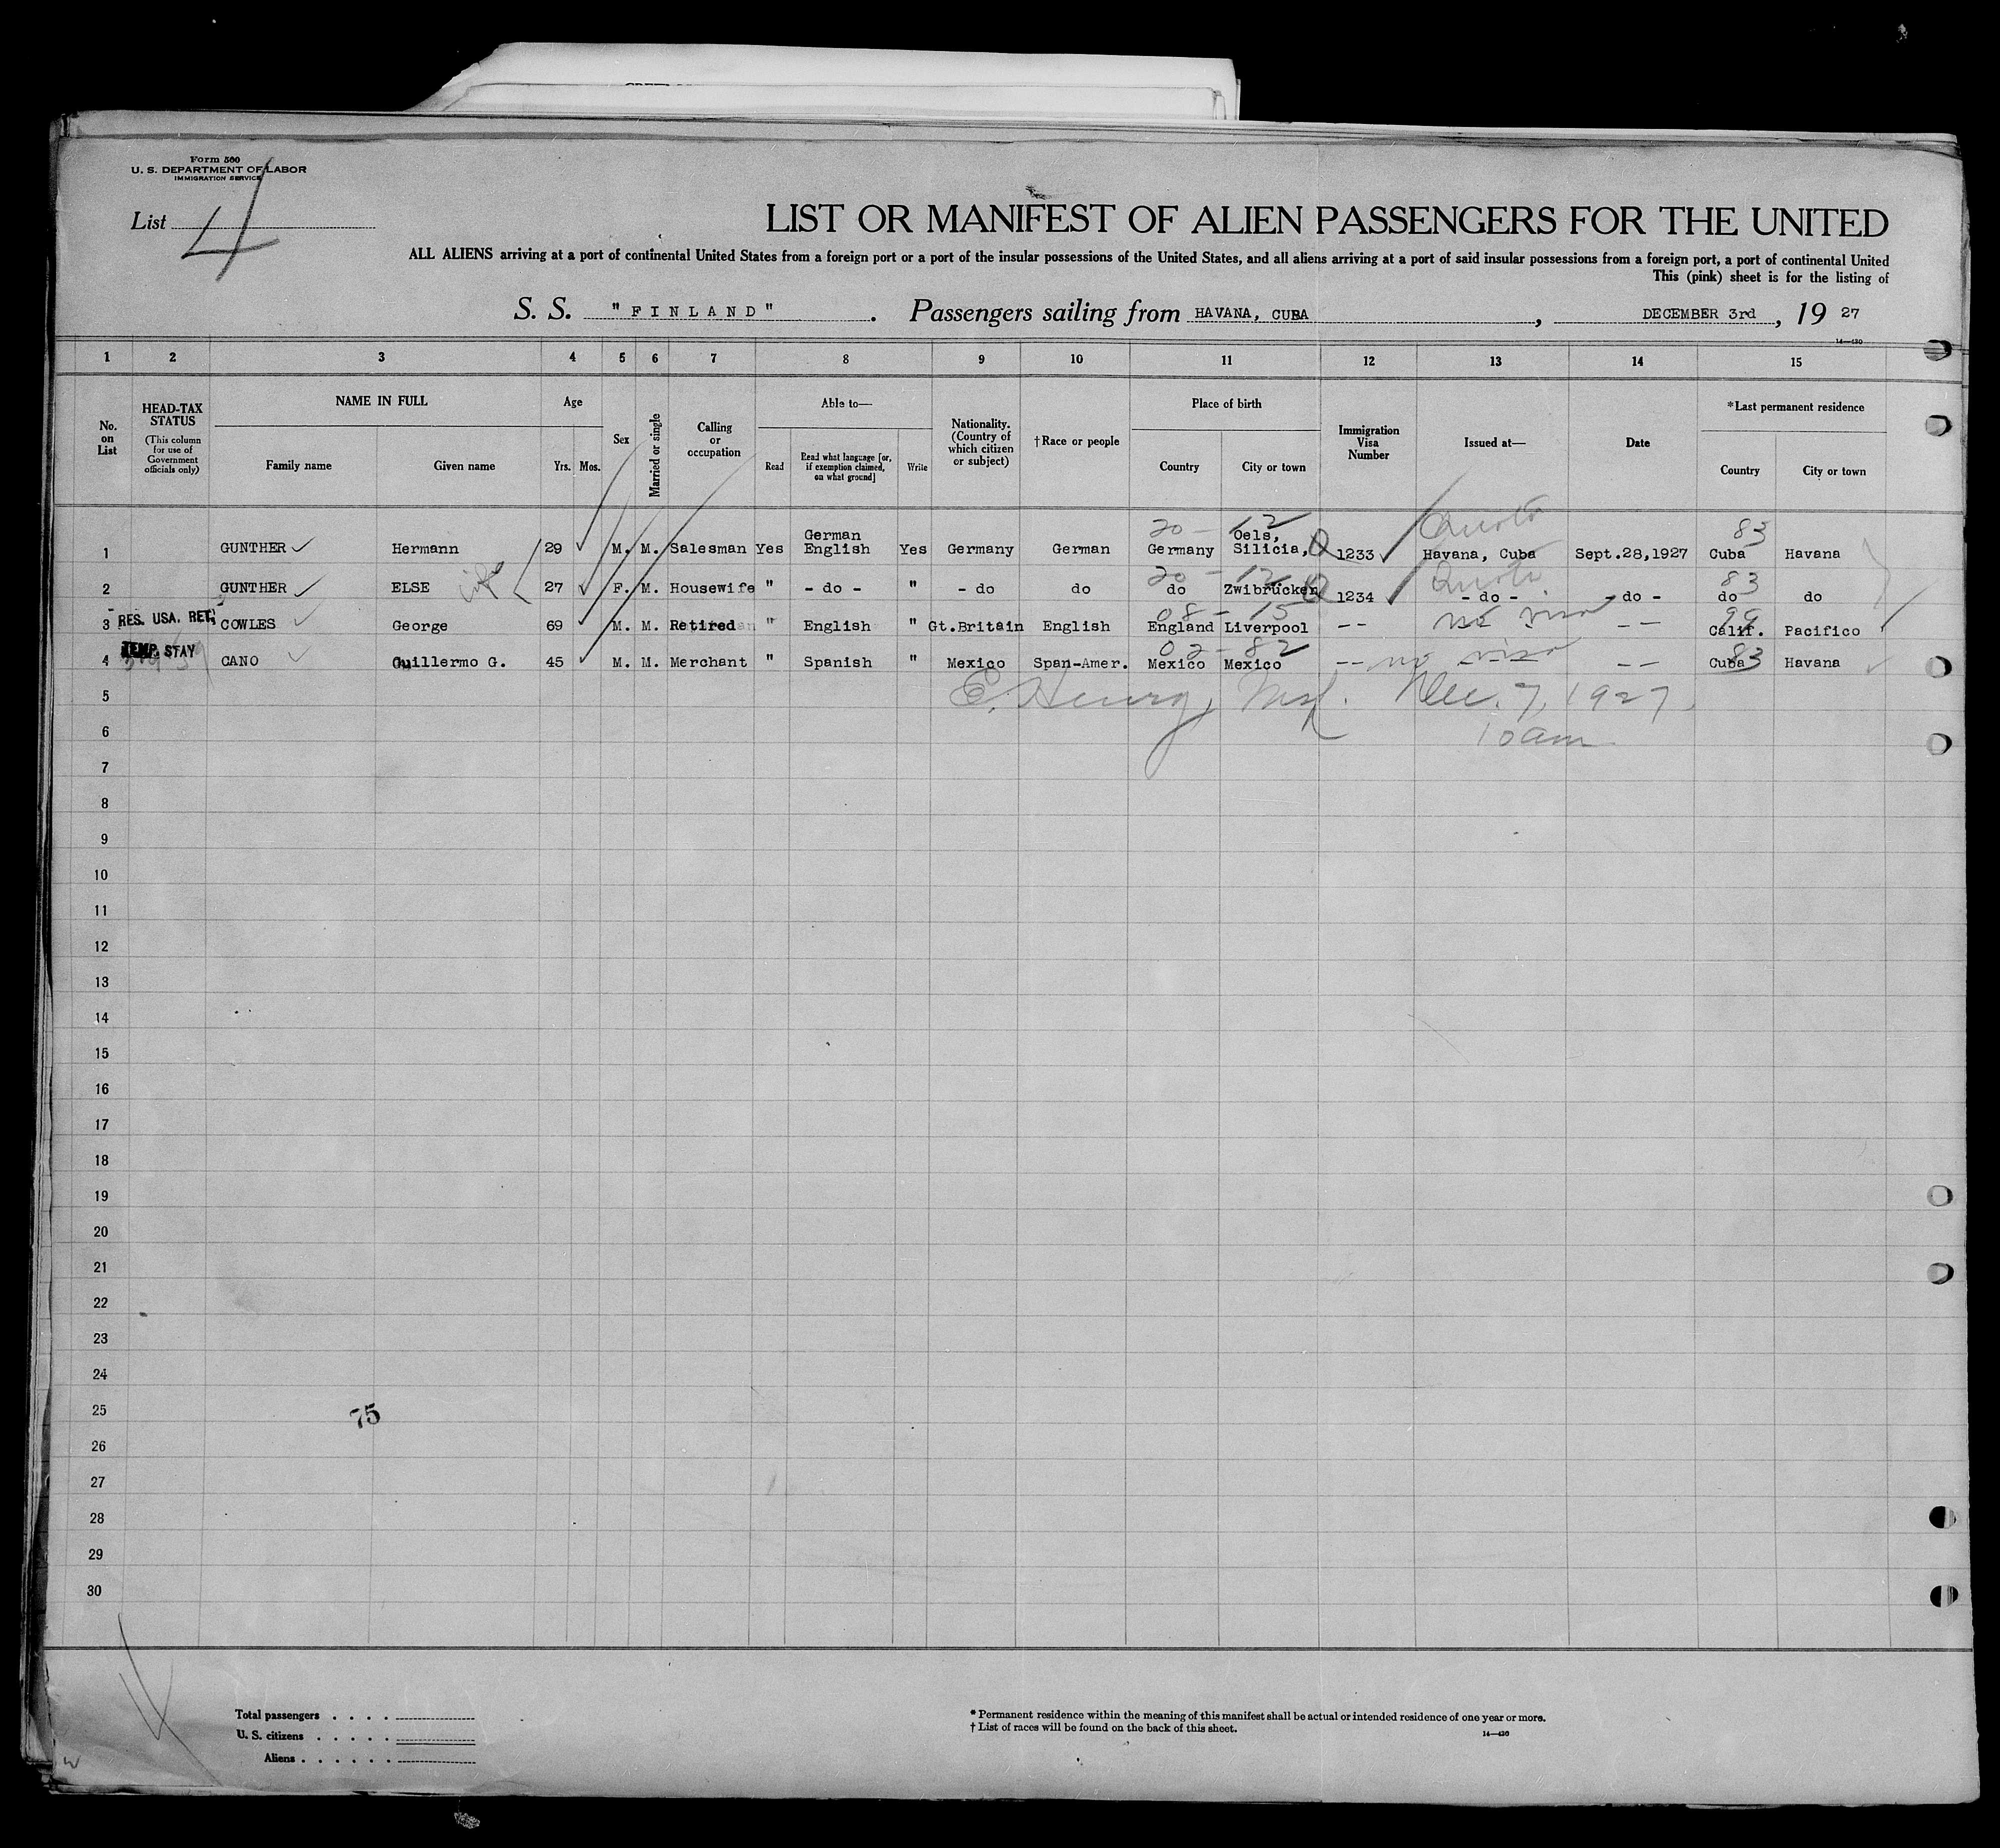 Form 500
U. S. DEPARTMENT OF LABOR
IMMIGRATION SERVICE
List 4
LIST OR MANIFEST OF ALIEN PASSENGERS FOR THE UNITED
ALL ALIENS arriving at a port of continental United States from a foreign port or a port of the insular possessions of the United States, and all aliens arriving at a port of said insular possessions from a foreign port, a port of continental United
This (pink) sheet is for the listing of
S. S. "FINLAND". Passengers sailing from HAVANA, CUBA, DECEMBER 3rd, 19 27
14—430
1 2 3 4 5 6 7 8 9 10 11 12 13 14 15
No. on List
HEAD-TAX STATUS (This column for use of Government officials only)
NAME IN FULL
Family name Given name
Age
Yrs. Mos.
Sex
Married or single
Calling or occupation
Able to—
Read Read what language [or, if exemption claimed, on what ground] Write
Nationality. (Country of which citizen or subject)
†Race or people
Place of birth
Country City or town
Immigration Visa Number
Issued at—
Date
*Last permanent residence
Country City or town
20 - 12 Quota 83
1 GUNTHER Hermann 29 M. M. Salesman Yes German English Yes Germany German Germany Oels, Silicia, Q 1233 Havana, Cuba Sept.28,1927 Cuba Havana
20 - 12 Quota 83
2 GUNTHER ELSE wife 27 F. M. Housewife " - do - " - do do do Zwibrucken Q 1234 - do - - do - do do
08 - 15 no visa 99
3 RES. USA. RET. COWLES George 69 M. M. Retired " English " Gt.Britain English England Liverpool -- -- Calif. Pacifico
02 - 82 no visa 83
4 TEMP. STAY CANO Guillermo G. 45 M. M. Merchant " Spanish " Mexico Span-Amer. Mexico Mexico -- -- Cuba Havana
5 E. Henry, Insp. Dec. 7, 1927
6 10 am
7
8
9
10
11
12
13
14
15
16
17
18
19
20
21
22
23
24
25
75
26
27
28
29
30
Total passengers . . . .
U. S. citizens . . . . .
Aliens . . . . . .
* Permanent residence within the meaning of this manifest shall be actual or intended residence of one year or more.
† List of races will be found on the back of this sheet.
14—430